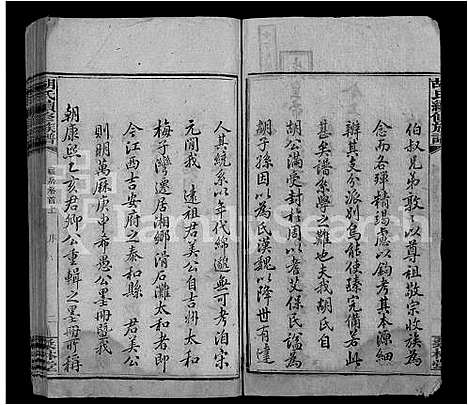 胡氏續修族譜
伯叔兄弟敢以尊祖敬宗收族為
念而各殫精竭慮以鈎考核
辨其支分派別烏能使臻完備若此
甚矣譜系學之難也夫我胡氏自
胡公滿受封程周以耆艾保氏謚為
胡子孫因以為氏漢魏以降世有達
人其統系以年代綿邈無可考洎宋
元間我 遠祖君美公自吉州太和
梅子灣遷居湘鄉滑石灘太和者即
今江西吉安府之泰和縣 君美公
則明萬厤庚申希愚公墨冊暨我
朝康熙乙亥君卿公重輯之墨冊所稱
胡氏續修族譜
卷首上